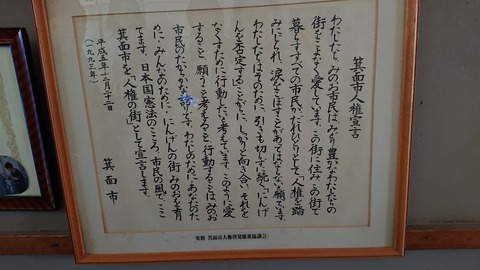 箕面市人権宣言
わたしたち、みのお市民は、みどり豊かなわたしたちの
街をこよなく愛しています。この街に住み、この街で
暮らすすべての市民が、だれひとりとして「人権を踏
みにじられ、涙をこぼすことがあってはならない」と願っています。
わたしたちはそのために、引きも切らず続く「にんげ
んを否定する」ことがらに、しっかりと向き合い、それを
なくすために行動したいと考えています。このように愛
すること、願うこと、考えること、行動することは、みのお
市民のたしかな誇りです。わたしのために、あなたのた
めに、みんなのために、にんげんの街みのおを育
てます。日本国憲法のこころ、市民の風で、ここ
箕面市を「人権の街」として宣言します。
平成五年十二月二十二日
(一九九三年)
箕面市
寄贈 箕面市人権啓発推進協議会